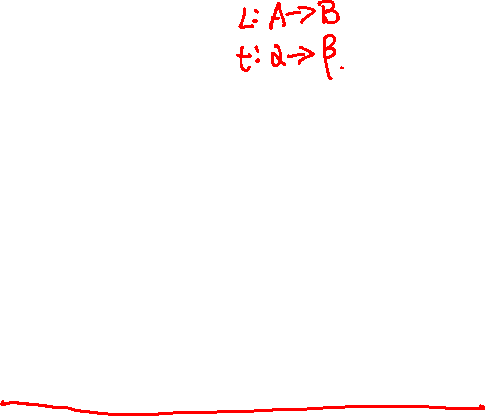 L: A→B
t: α→β.